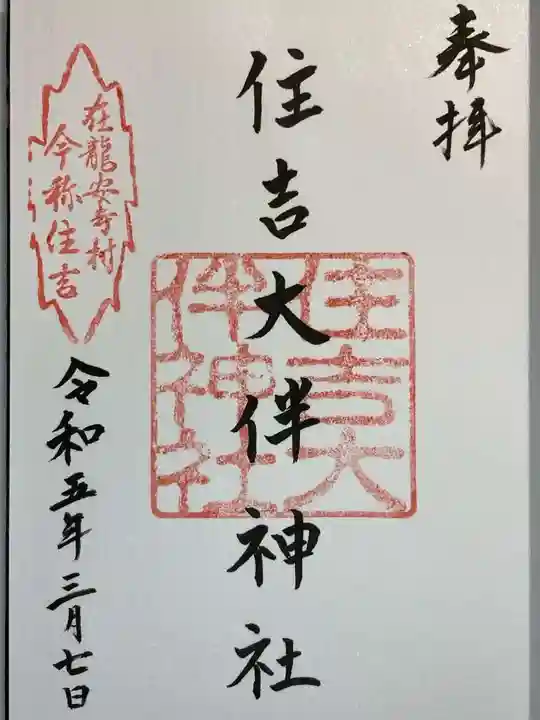 奉拝
住吉大伴神社
住吉大
伴神社
在龍安寺村
今称住吉
令和五年三月七日